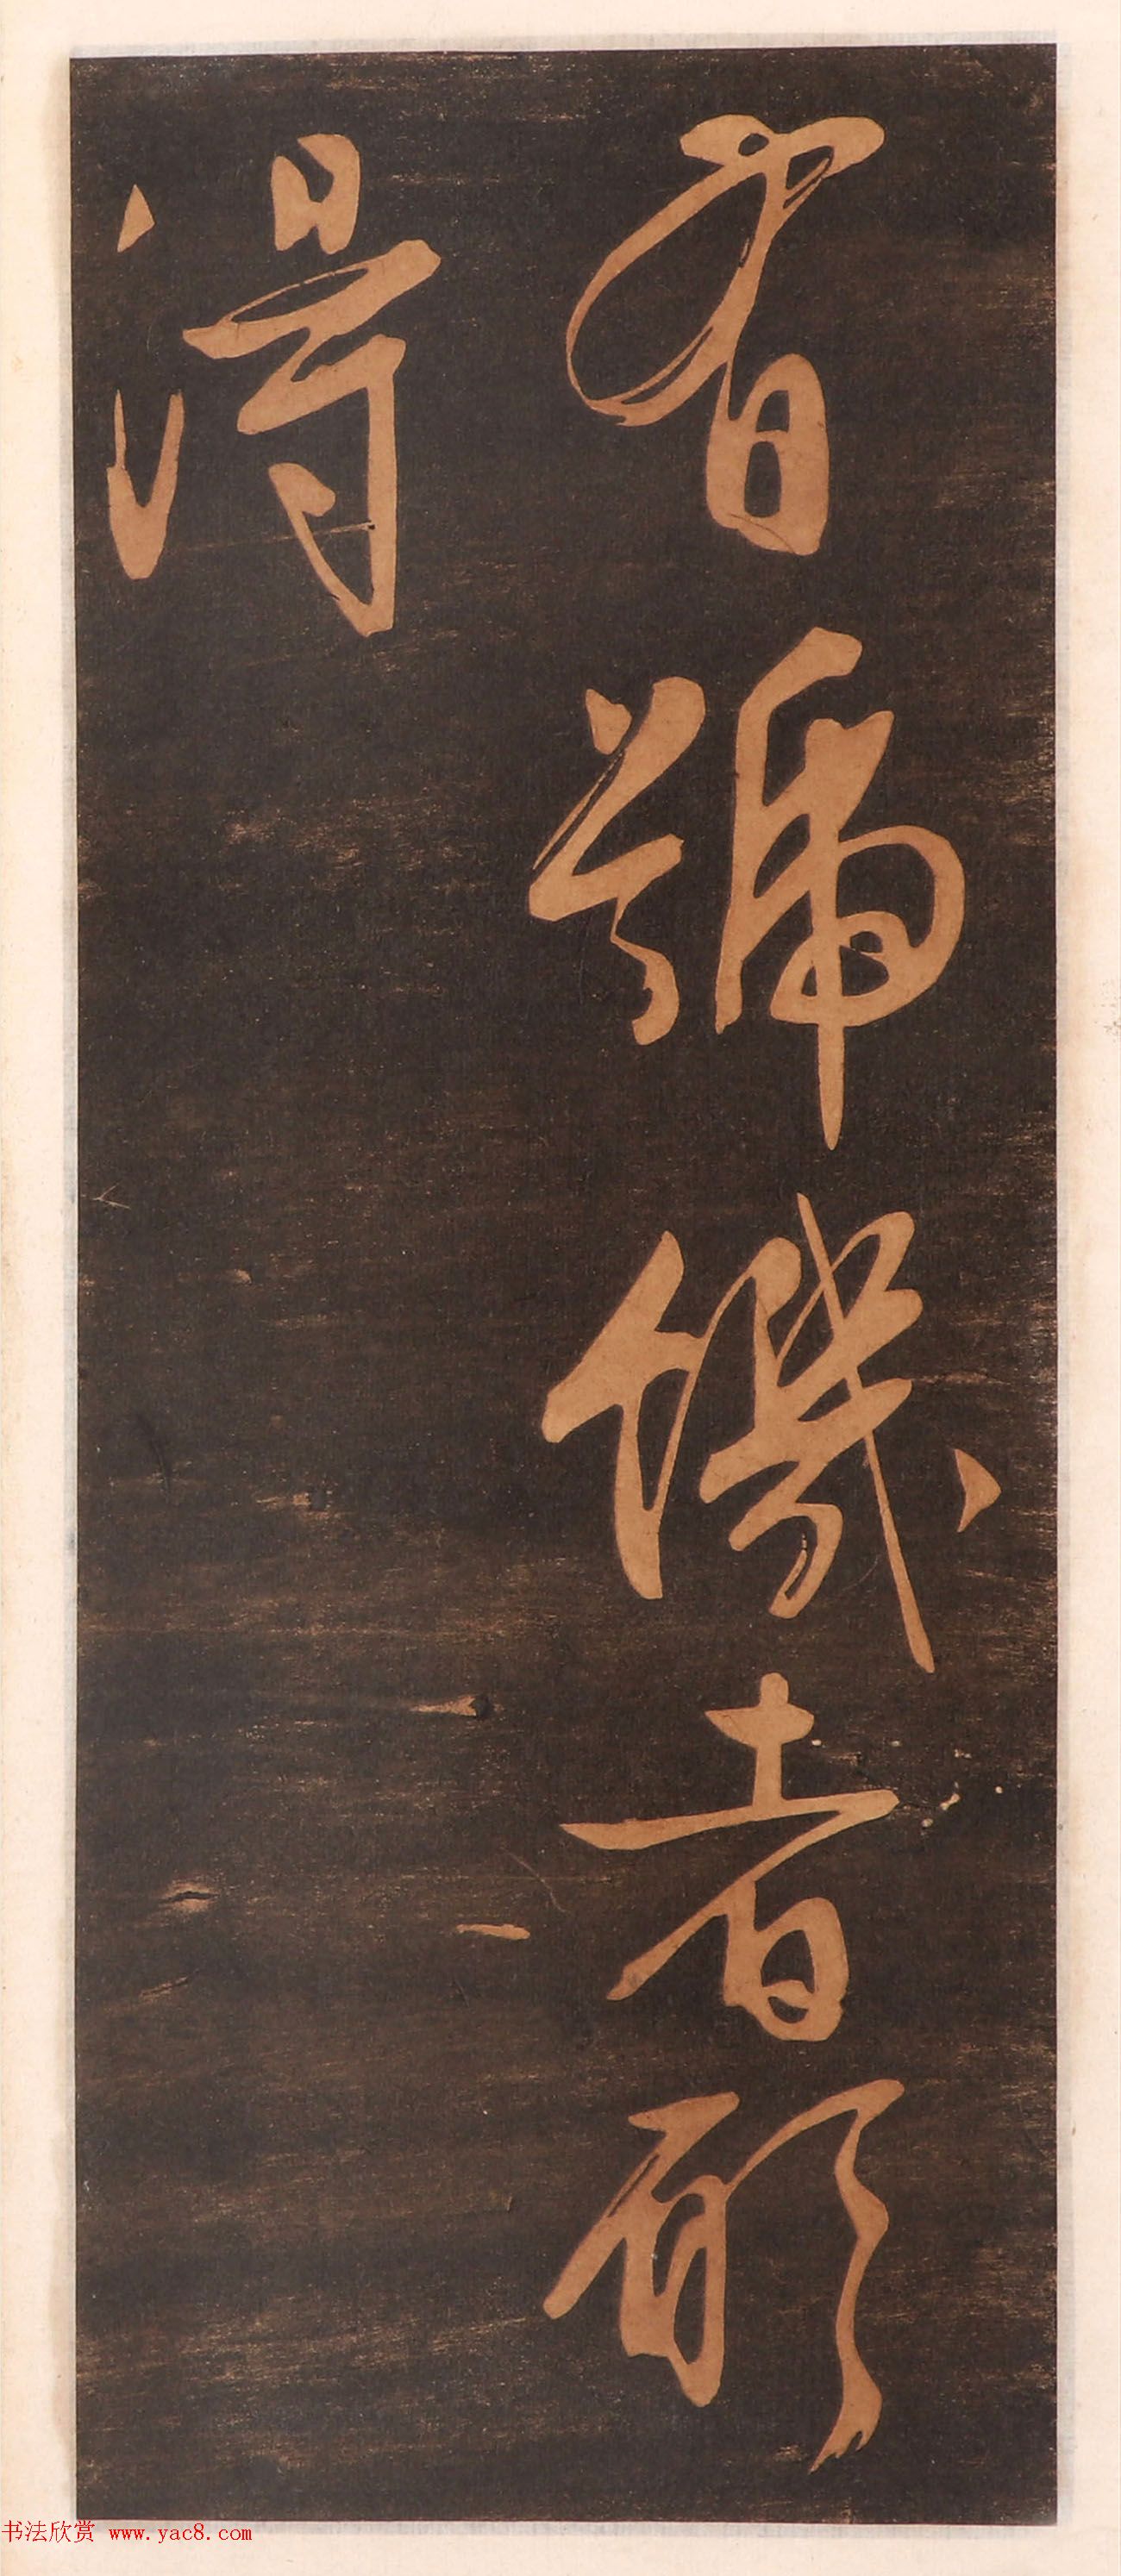 有號饑者顧
得
书法欣赏 www.yac8.com